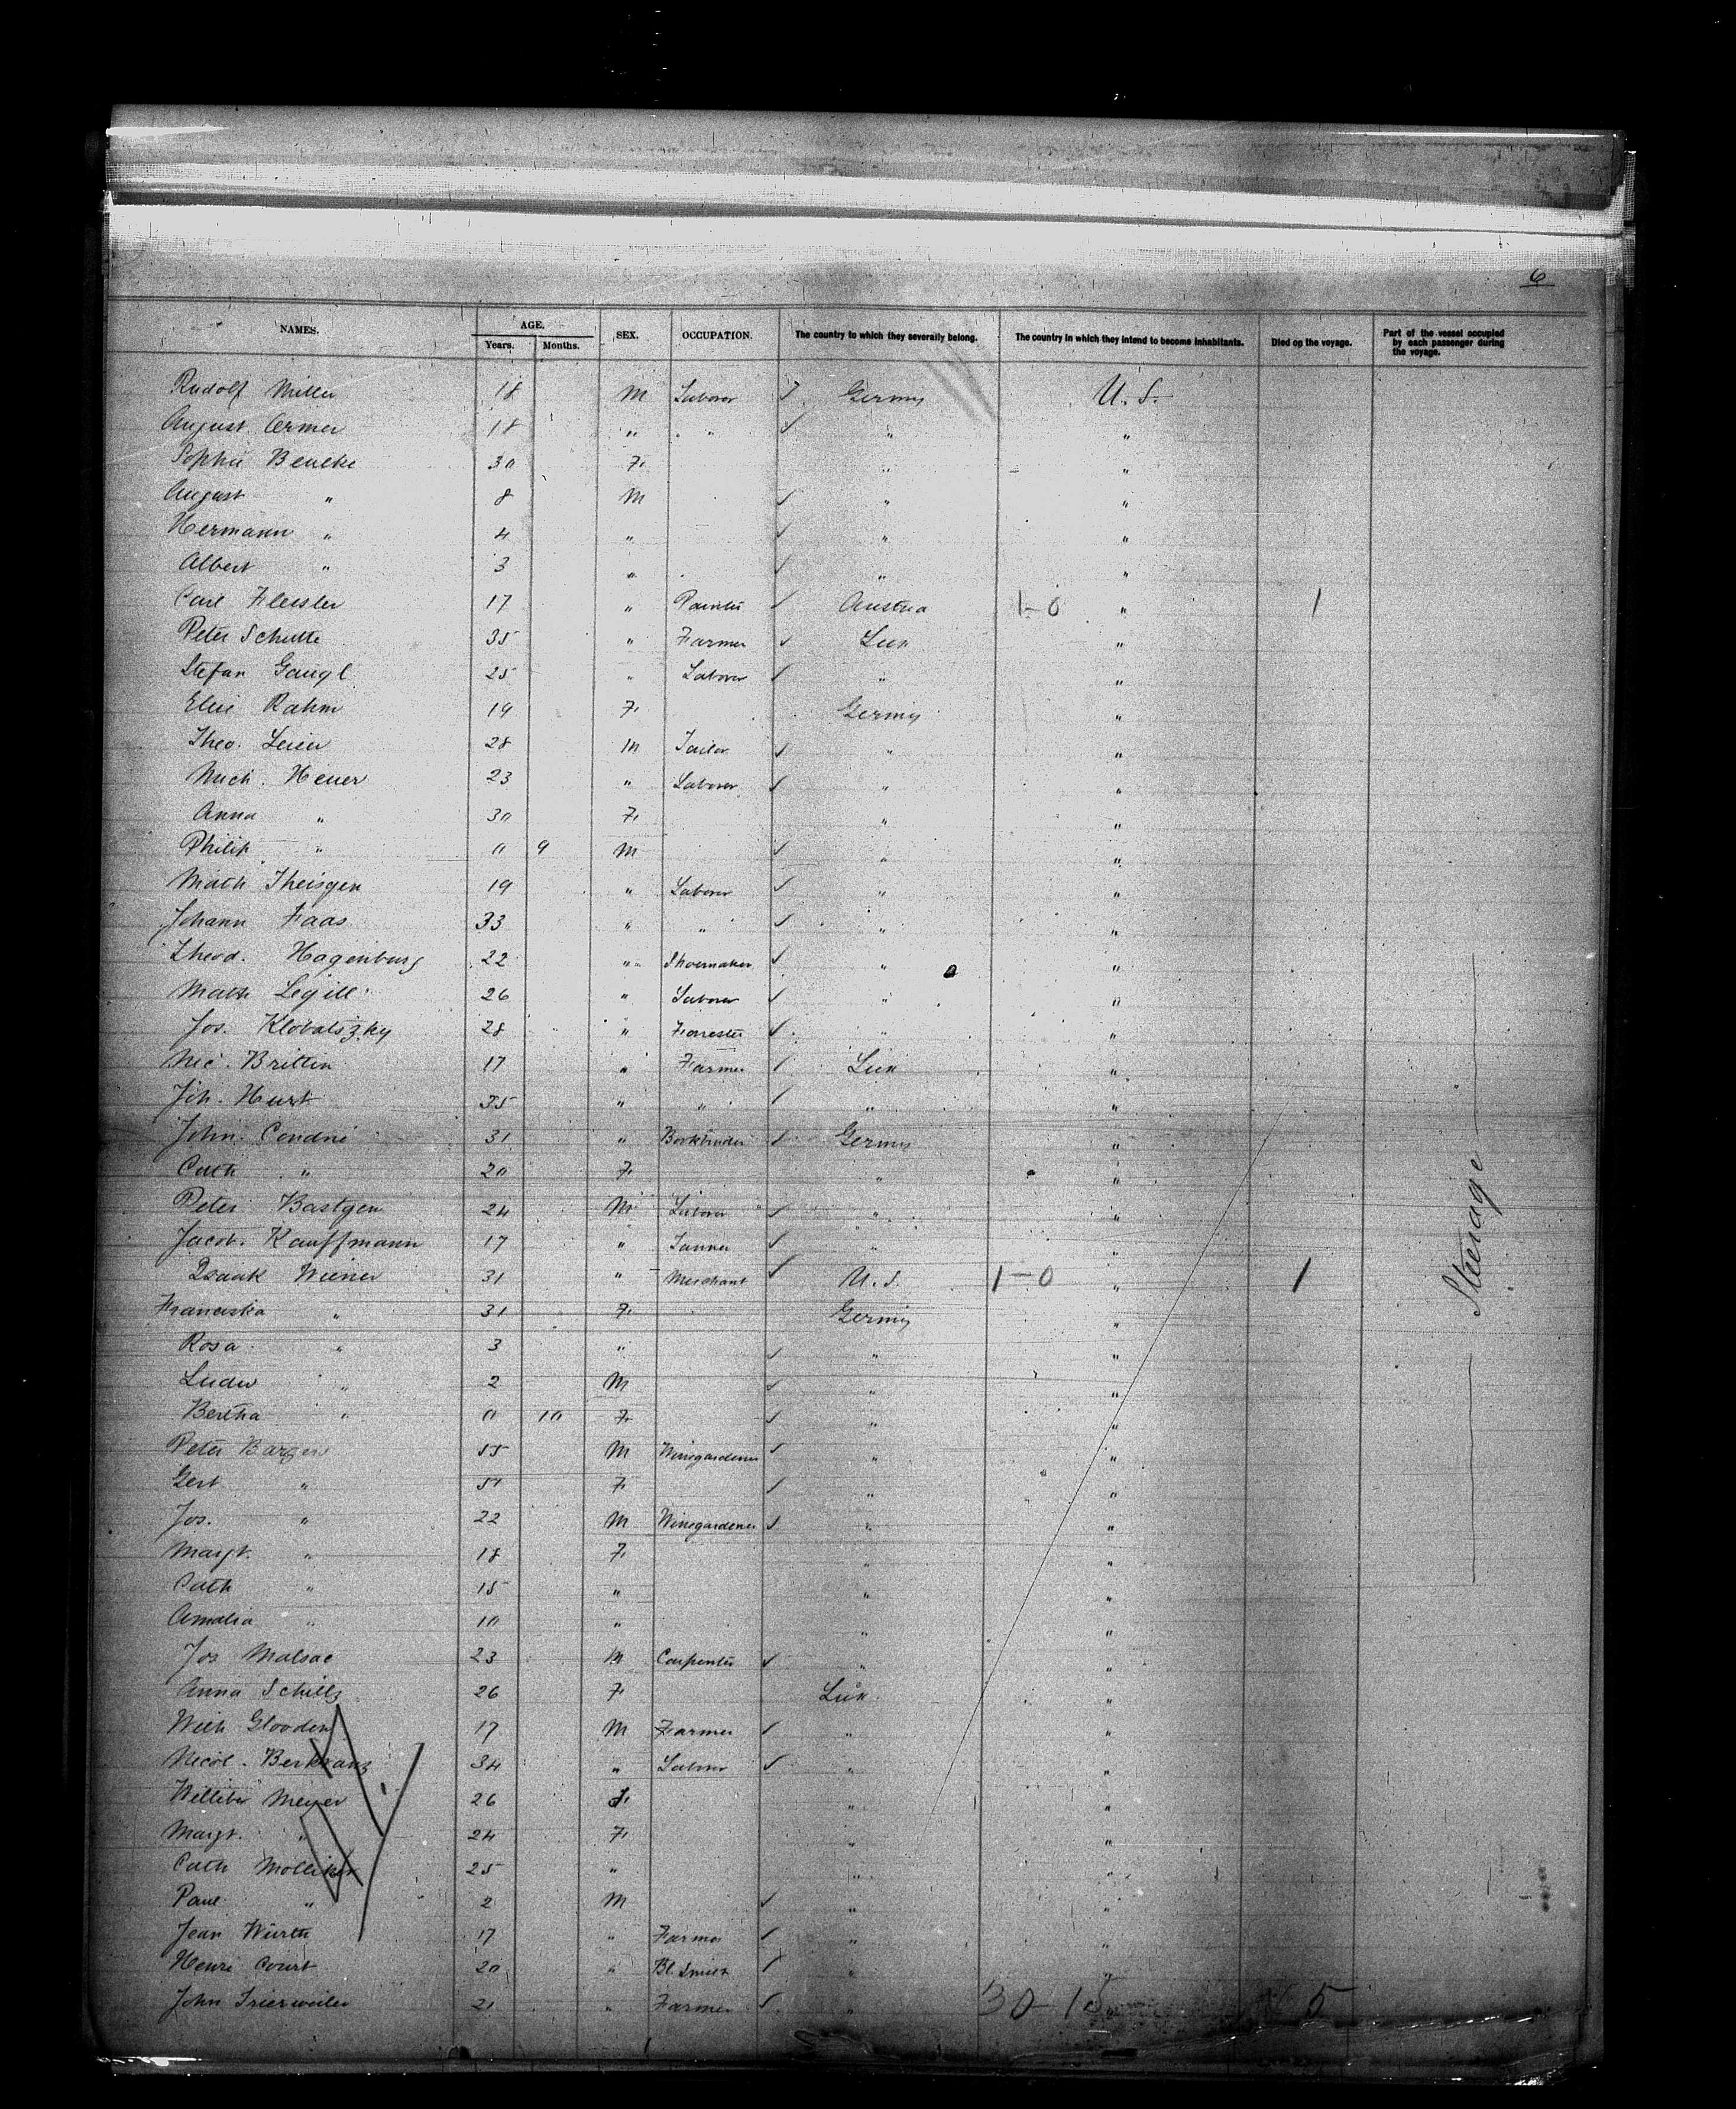 6
NAMES. AGE. SEX. OCCUPATION. The country to which they severally belong. The country in which they intend to become inhabitants. Died on the voyage. Part of the vessel occupied by each passenger during the voyage.
Years. Months.
Rudolf Miller 18 M Laborer Germy U. S.
August Ermer 18 " " " "
Sophie Beneke 30 F. " "
August " 8 M " "
Hermann " 4 " " "
Albert " 3 " " "
Carl 17 " Painter Austria 1-0 " 1
Peter Schutte 35 " Farmer Lux "
Stefan Gaugl 25 " Laborer " "
Elise Rahm 19 F. Germy "
Theo. Leier 28 M Tailor " "
Mich. Heuer 23 " Laborer " "
Anna " 30 F. " "
Philip " 0 9 M " "
Math Theisgen 19 " Laborer " "
Johann Faas 33 " " " "
Theod. Hagenburg 22 " Shoemaker " "
Math Legill 26 " Laborer " "
Jos. Klobatszky 28 " Forrester " "
Nic. Brittin 17 " Farmer Lux "
Joh. Hurt 35 " " " "
John. Condné 31 " Bookbinder Germy "
Cath " 20 F. " "
Peter Bastgen 24 M Laborer " "
Jacob. Kauffmann 17 " Tanner " "
Isaak Wiener 31 " Merchant U. S. 1-0 " 1
Franciska " 31 F. Germy "
Rosa " 3 " " "
Ludw " 2 M " "
Bertha " 0 10 F. " "
Peter Barzen 55 M Winegardener " "
Gert " 51 F. " "
Jos. " 22 M Winegardener " "
Margt. " 18 F. " "
Cath " 15 " " "
Amalia " 10 " " "
Jos Malsac 23 M Carpenter " "
Anna Schiltz 26 F Lux "
Glooden 17 M Farmer " "
Nicol. 34 " Laborer " "
Meyer 26 F. " "
Margt. " 24 F. " "
Cath 25 " " "
Paul " 2 M " "
Jean Würth 17 " Farmer " "
Henri Court 20 " Bl. Smith " "
John Trierweiler 21 " Farmer " 30-15 5
Steerage